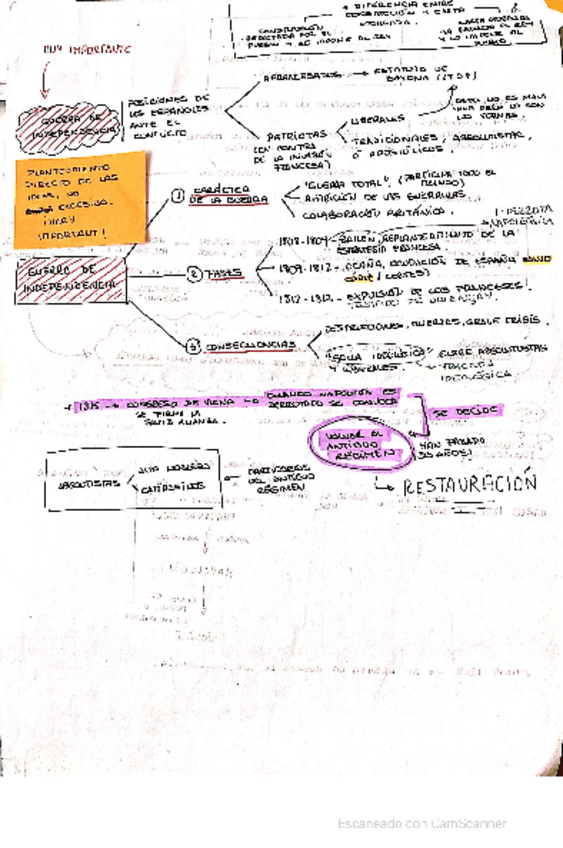 * DIFERENCIA ENTRE
CONSTITUCIÓN Y CARTA
OTORGADA.
CONSTITUCIÓN
REDACTADA POR EL
PUEBLO Y SE IMPONE AL REY
CARTA OTORGADA
LA REDACTA EL REY
Y LO IMPONE AL
PUEBLO
MUY IMPORTANTE
GUERRA DE
INDEPENDENCIA
POSICIONES DE
LOS ESPAÑOLES
ANTE EL
CONFLICTO
AFRANCESADOS → ESTATUTO DE
BAYONA (1808)
PATRIOTAS
(EN CONTRA
DE LA INVASIÓN
FRANCESA)
LIBERALES
TRADICIONALES, ABSOLUTISTAS,
O APOSTÓLICOS.
PLANTEAMIENTO
DIRECTO DE LAS
IDEAS, NO
EXCESIVA.
¡MUY
IMPORTANT!
GUERRA DE
INDEPENDENCIA
① CARÁCTER
DE LA GUERRA
"GUERRA TOTAL" (PARTICIPA TODO EL
MUNDO)
APARICIÓN DE LAS GUERRILLAS.
COLABORACIÓN BRITÁNICA.
② FASES
1808-1809 - BAILÉN, REPLANTEAMIENTO DE LA
ESTRATEGIA FRANCESA.
1ª DERROTA
NAPOLEÓNICA
1809-1812 - OCAÑA, OCUPACIÓN DE ESPAÑA SALVO
CÁDIZ (CORTES)
1812-1813 - EXPULSIÓN DE LOS FRANCESES.
③ CONSECUENCIAS
DESTRUCCIONES, MUERTES, GRAVE CRISIS.
"GUERRA IDEOLÓGICA" ENTRE ABSOLUTISTAS
Y LIBERALES.
IDEOLÓGICA
* 1815 → CONGRESO DE VIENA → CUANDO NAPOLEÓN ES
DERROTADO SE CONVOCA
SE FIRMA LA
SANTA ALIANZA.
SE DECIDE
VOLVER AL
ANTIGUO
RÉGIMEN
(HAN PASADO
25 AÑOS)
↳ RESTAURACIÓN
ABSOLUTISTAS
ALTA NOBLEZA
CAMPESINOS
← PARTIDARIOS
DEL ANTIGUO
RÉGIMEN
Escaneado con CamScanner